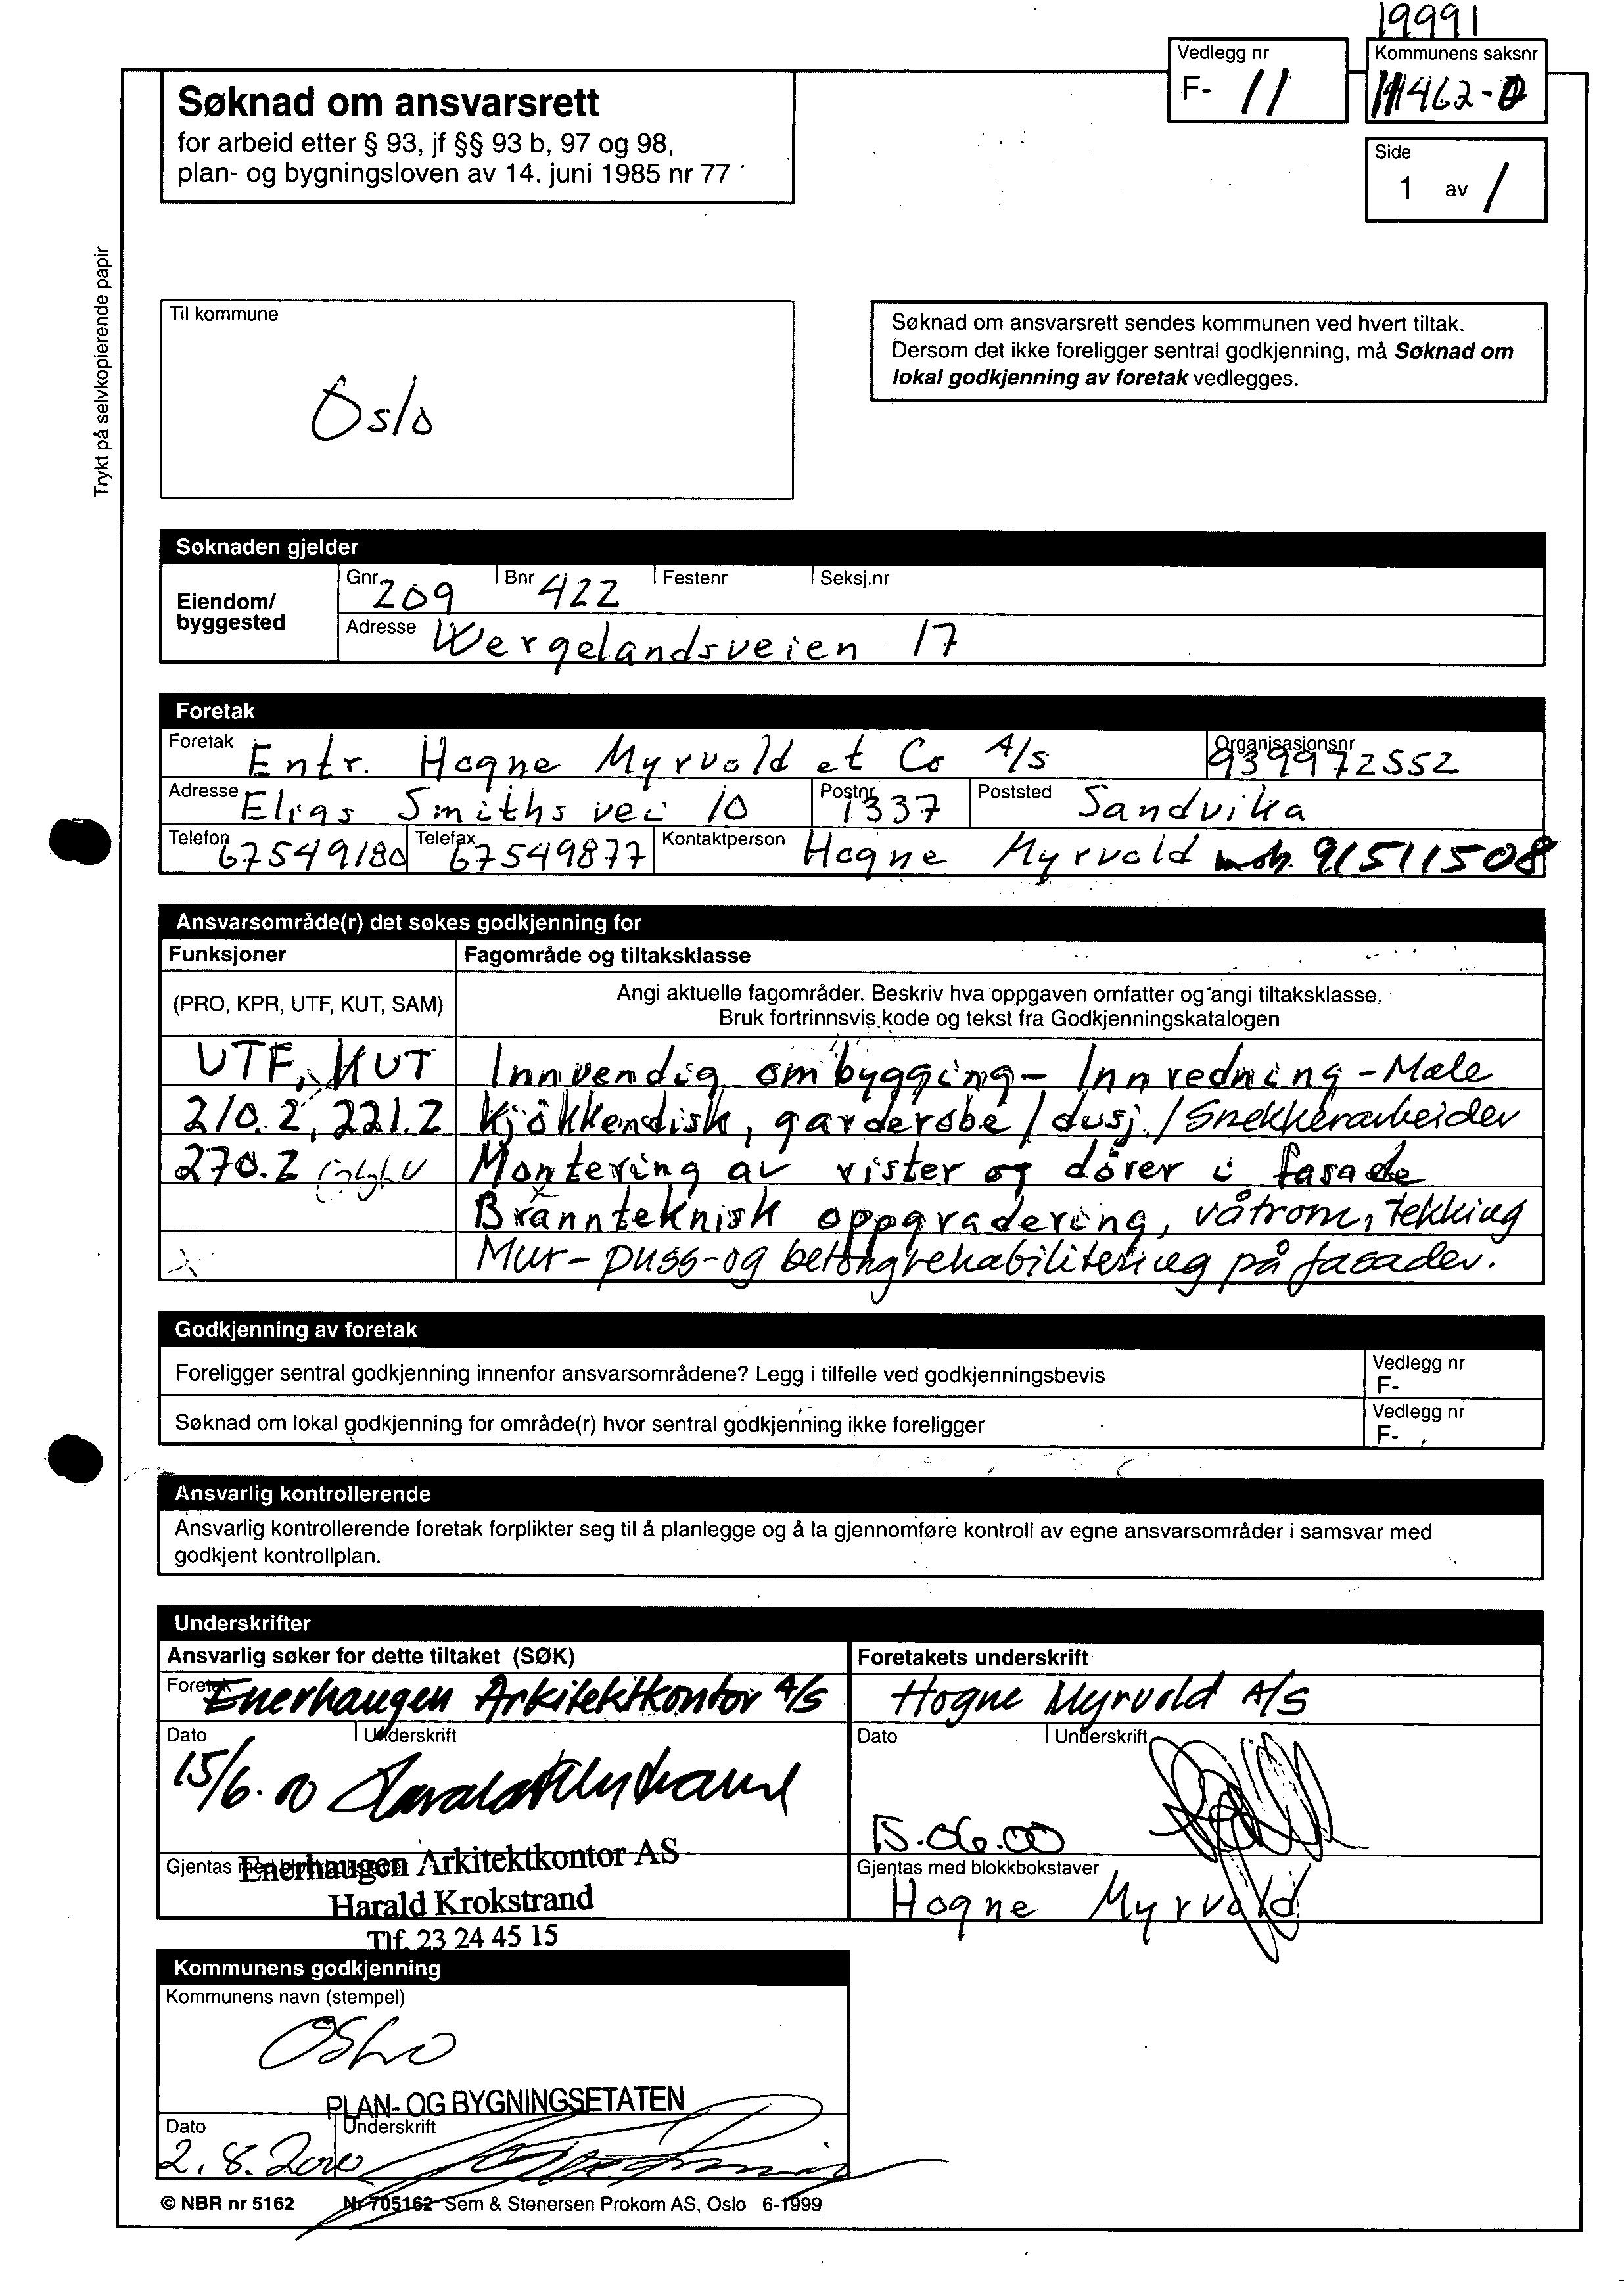 19991
Vedlegg nr
F- 11
Kommunens saksnr
Søknad om ansvarsrett
for arbeid etter § 93, jf §§ 93 b, 97 og 98,
plan- og bygningsloven av 14. juni 1985 nr 77
Side
1 av 1
Trykt på selvkopierende papir
Til kommune
Oslo
Søknad om ansvarsrett sendes kommunen ved hvert tiltak.
Dersom det ikke foreligger sentral godkjenning, må Søknad om
lokal godkjenning av foretak vedlegges.
Søknaden gjelder
Eiendom/
byggested
Gnr 209 Bnr 422 Festenr Seksj.nr
Adresse Wergelandsveien 17
Foretak
Foretak Entr. Hogne Myrvold et Co A/S Organisasjonsnr 939972552
Adresse Elias Smiths vei 10 Postnr 1337 Poststed Sandvika
Telefon 67549180 Telefax 67549877 Kontaktperson Hogne Myrvold mob. 91511508
Ansvarsområde(r) det søkes godkjenning for
Funksjoner Fagområde og tiltaksklasse
(PRO, KPR, UTF, KUT, SAM)
Angi aktuelle fagområder. Beskriv hva oppgaven omfatter og angi tiltaksklasse.
Bruk fortrinnsvis kode og tekst fra Godkjenningskatalogen
UTF, KUT Innvendig ombygging - Innredning - Male
210.2, 221.2 Kjökkendisk, garderobe / dusj. / Snekkerarbeider
270.2 Montering av vister og dörer i fasade
Brannteknisk oppgradering, våtrom, tekking
Mur- puss- og betongrehabilitering på fasader.
Godkjenning av foretak
Foreligger sentral godkjenning innenfor ansvarsområdene? Legg i tilfelle ved godkjenningsbevis
Vedlegg nr
F-
Søknad om lokal godkjenning for område(r) hvor sentral godkjenning ikke foreligger
Vedlegg nr
F-
Ansvarlig kontrollerende
Ansvarlig kontrollerende foretak forplikter seg til å planlegge og å la gjennomføre kontroll av egne ansvarsområder i samsvar med
godkjent kontrollplan.
Underskrifter
Ansvarlig søker for dette tiltaket (SØK)
Foretak Enerhaugen Arkitektkontor A/S
Dato Underskrift
15/6.00
Gjentas med
Enerhaugen Arkitektkontor AS
Harald Krokstrand
Tlf. 23 24 45 15
Foretakets underskrift
Hogne Myrvold A/S
Dato Underskrift
15.06.00
Gjentas med blokkbokstaver
Hogne Myrvold
Kommunens godkjenning
Kommunens navn (stempel)
OSLO
PLAN- OG BYGNINGSETATEN
Dato Underskrift
2.8.2000
© NBR nr 5162 Nr 705162 Sem & Stenersen Prokom AS, Oslo 6-1999